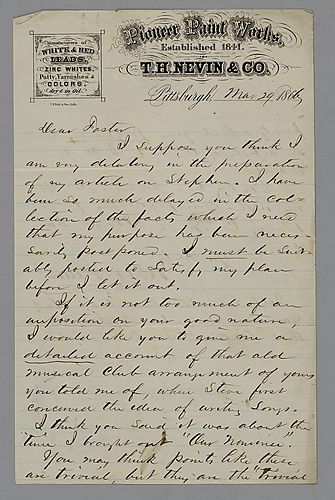 Manufacturers of
WHITE & RED
LEADS,
ZINC WHITES,
Putty, Varnishes &
COLORS,
Dry & in Oil.
Pioneer Paint Works,
Established 1841.
T. H. NEVIN & CO.
Pittsburgh, Mar 29 186
Dear Foster
I suppose you think I
am very dilatory in the preparation
of my article on Stephen. I have
been so much delayed in the col-
lection of the facts which I need
that my purpose has been neces-
sarily postponed. I must be suit-
ably posted to satisfy my plan
before I let it out.
If it is not too much of an
imposition on your good nature,
I would like you to give me a
detailed account of that old
musical club arrangement of yours
you told me of, when Steve first
conceived the idea of writing songs.
I think you said it was about the
time I brought out "Our Nominee".
You may think points like these
are trivial, but they are the trivial